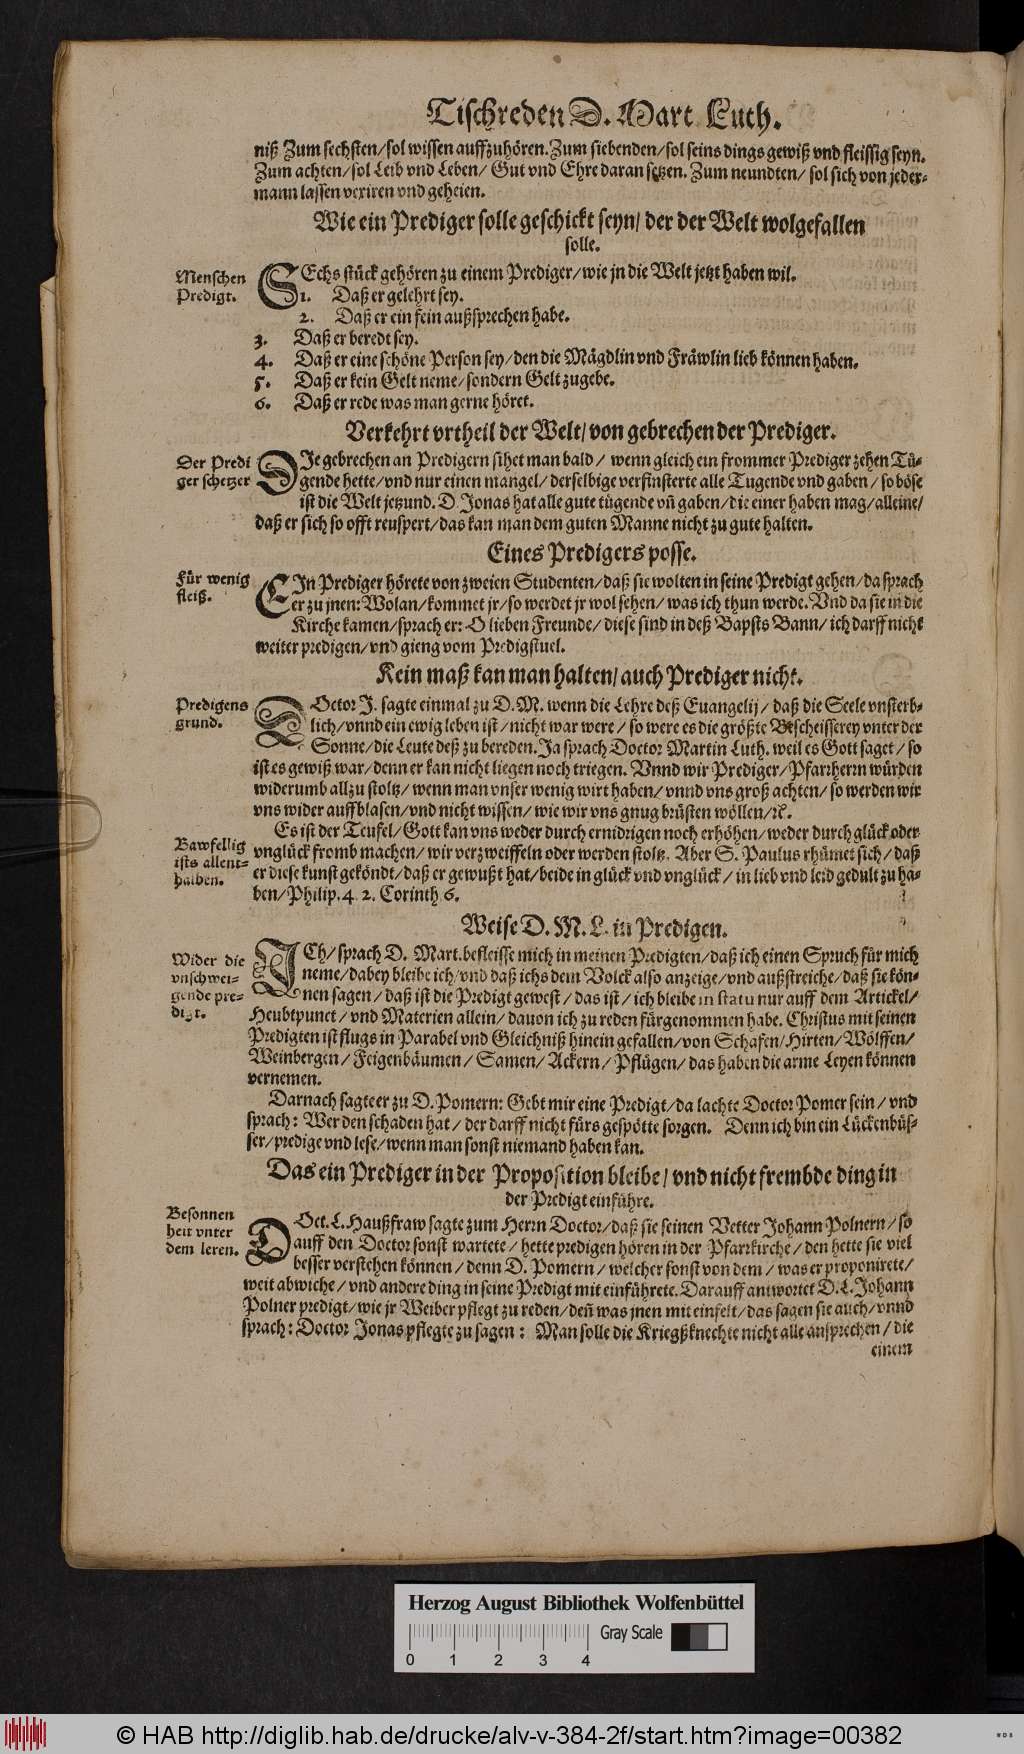 Tischreden D. Mart. Luth.
niß Zum sechsten/sol wissen auffzuhören. Zum siebenden/sol seins dings gewiß vnd fleissig seyn.
Zum achten/sol Leib vnd Leben/ Gut vnd Ehre daran setzen. Zum neundten/ sol sich von jeder-
mann lassen vexiren vnd geheien.
Wie ein Prediger solle geschickt seyn/ der der Welt wolgefallen
solle.
Menschen
Predigt.
SEchs stück gehören zu einem Prediger/wie jn die Welt jetzt haben wil.
1. Daß er gelehrt sey.
2. Daß er ein fein außsprechen habe.
3. Daß er beredt sey.
4. Daß er eine schöne Person sey/den die Mägdlin vnd Fräwlin lieb können haben.
5. Daß er kein Gelt neme/sondern Gelt zugebe.
6. Daß er rede was man gerne höret.
Verkehrt vrtheil der Welt/von gebrechen der Prediger.
Der Predi
ger schetzer
DIe gebrechen an Predigern sihet man bald/ wenn gleich ein frommer Prediger zehen Tü-
gende hette/vnd nur einen mangel/derselbige verfinsterte alle Tugende vnd gaben/so böse
ist die Welt jetzund. D. Jonas hat alle gute tügende vñ gaben/die einer haben mag/alleine/
daß er sich so offt reuspert/das kan man dem guten Manne nicht zu gute halten.
Eines Predigers posse.
Für wenig
fleiß.
EIn Prediger hörete von zweien Studenten/daß sie wolten in seine Predigt gehen/da sprach
er zu jnen: Wolan/kommet jr/so werdet jr wol sehen/was ich thun werde. Vnd da sie in die
Kirche kamen/sprach er: O lieben Freunde/diese sind in deß Bapsts Bann/ich darff nicht
weiter predigen/vnd gieng vom Predigstuel.
Kein maß kan man halten/auch Prediger nicht.
Predigens
grund.
DOctor J. sagte einmal zu D. M. wenn die Lehre deß Euangelij/ daß die Seele vnsterb-
lich/vnnd ein ewig leben ist/nicht war were/ so were es die größte Bescheisserey vnter der
Sonne/die Leute deß zu bereden. Ja sprach Doctor Martin Luth. weil es Gott saget/ so
ist es gewiß war/denn er kan nicht liegen noch triegen. Vnnd wir Prediger/Pfarrherrn würden
widerumb allzu stoltz/wenn man vnser wenig wirt haben/vnnd vns groß achten/so werden wir
vns wider auffblasen/vnd nicht wissen/wie wir vns gnug brüsten wöllen/ꝛc.
Bawfellig
ists allent-
halben.
Es ist der Teufel/Gott kan vns weder durch ernidrigen noch erhöhen/weder durch glück oder
vnglück fromb machen/wir verzweiffeln oder werden stoltz. Aber S. Paulus rhümet sich/daß
er diese kunst geköndt/daß er gewußt hat/beide in glück vnd vnglück/in lieb vnd leid gedult zu ha-
ben/Philip. 4. 2. Corinth 6.
Weise D. M. L. in Predigen.
Wider die
vnschwei-
gende pre-
digt.
ICh/sprach D. Mart. befleisse mich in meinen Predigten/daß ich einen Spruch für mich
neme/dabey bleibe ich/vnd daß ichs dem Volck also anzeige/vnd außstreiche/daß sie kön-
nen sagen/daß ist die Predigt gewest/das ist/ ich bleibe in statu nur auff dem Artickel/
Heubtpunct/ vnd Materien allein/dauon ich zu reden fürgenommen habe. Christus mit seinen
Predigten ist flugs in Parabel vnd Gleichniß hinein gefallen/von Schafen/Hirten/Wölffen/
Weinbergen/Feigenbäumen/ Samen/ Ackern/ Pflügen/ das haben die arme Leyen können
vernemen.
Darnach sagte er zu D. Pomern: Gebt mir eine Predigt/da lachte Doctor Pomer sein/ vnd
sprach: Wer den schaden hat/ der darff nicht fürs gespötte sorgen. Denn ich bin ein Lückenbüs-
ser/predige vnd lese/wenn man sonst niemand haben kan.
Das ein Prediger in der Proposition bleibe/ vnd nicht frembde ding in
der Predigt einführe.
Besonnen
heit vnter
dem leren.
DOct. L. Haußfraw sagte zum Herrn Doctor/daß sie seinen Vetter Johann Polnern/ so
auff den Doctor sonst wartete/ hette predigen hören in der Pfarrkirche/ den hette sie viel
besser verstehen können/ denn D. Pomern/ welcher sonst von dem/ was er proponirete/
weit abwiche/ vnd andere ding in seine Predigt mit einführete. Darauff antwortet D. L. Johann
Polner predigt/wie jr Weiber pflegt zu reden/deñ was jnen mit einfelt/das sagen sie auch/vnnd
sprach: Doctor Jonas pflegte zu sagen: Man solle die Kriegßknechte nicht alle ansprechen/ die
einem
Herzog August Bibliothek Wolfenbüttel
Gray Scale
0 1 2 3 4
© HAB http://diglib.hab.de/drucke/alv-v-384-2f/start.htm?image=00382